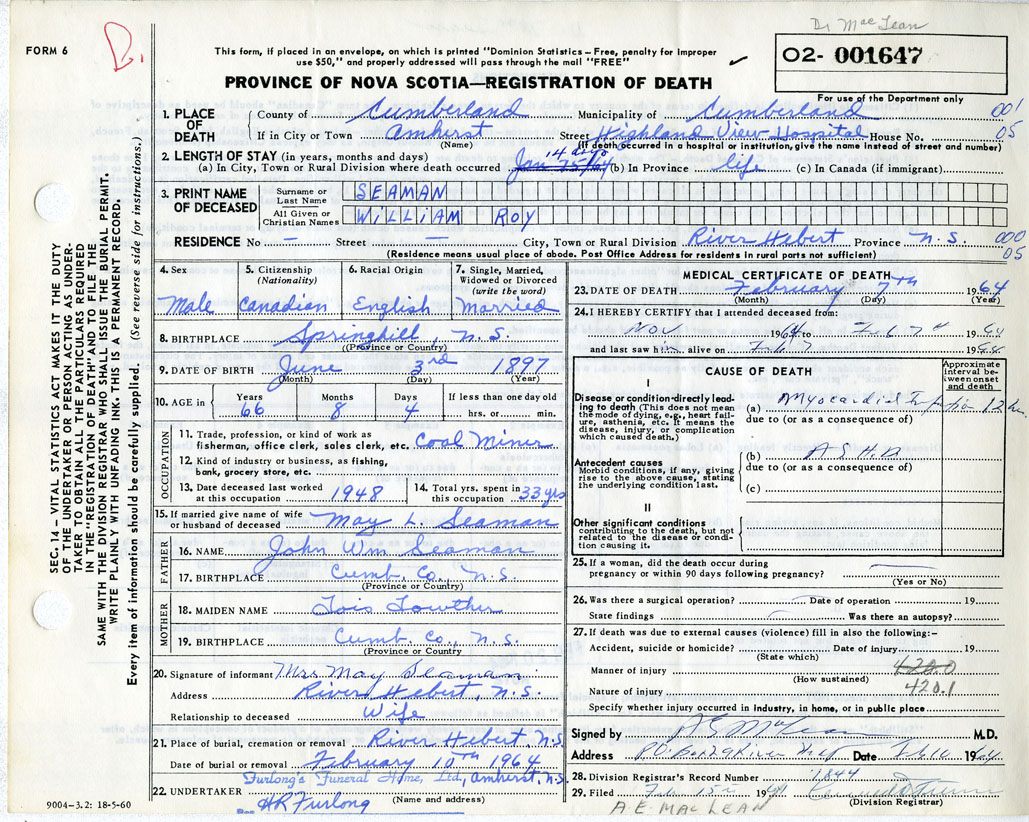 Dr MacLean
FORM 6
D.
This form, if placed in an envelope, on which is printed "Dominion Statistics – Free, penalty for improper
use $50," and properly addressed will pass through the mail "FREE"
✓
02- 001647
PROVINCE OF NOVA SCOTIA—REGISTRATION OF DEATH
For use of the Department only
1. PLACE OF DEATH
County of Cumberland Municipality of Cumberland 001
If in City or Town Amherst Street Highland View Hospital House No. 05
(Name) (If death occurred in a hospital or institution, give the name instead of street and number)
2. LENGTH OF STAY (in years, months and days) 14 days
(a) In City, Town or Rural Division where death occurred Jan 25/64 (b) In Province life (c) In Canada (if immigrant)
3. PRINT NAME OF DECEASED
Surname or Last Name SEAMAN
All Given or Christian Names WILLIAM ROY
RESIDENCE No – Street – City, Town or Rural Division River Hebert Province N.S. 000
05
(Residence means usual place of abode. Post Office Address for residents in rural parts not sufficient)
4. Sex 5. Citizenship (Nationality) 6. Racial Origin 7. Single, Married, Widowed or Divorced (write the word)
Male Canadian English Married
8. BIRTHPLACE Springhill, N.S.
(Province or Country)
9. DATE OF BIRTH June 3rd 1897
(Month) (Day) (Year)
10. AGE in Years Months Days If less than one day old
66 8 4 hrs. or min.
OCCUPATION
11. Trade, profession, or kind of work as
fisherman, office clerk, sales clerk, etc. Coal Miner
12. Kind of industry or business, as fishing,
bank, grocery store, etc.
13. Date deceased last worked
at this occupation 1948
14. Total yrs. spent in
this occupation 33 yrs
15. If married give name of wife
or husband of deceased May L. Seaman
FATHER
16. NAME John Wm Seaman
17. BIRTHPLACE Cumb. Co., N.S.
(Province or Country)
MOTHER
18. MAIDEN NAME Lois Lowther
19. BIRTHPLACE Cumb. Co., N.S.
(Province or Country
20. Signature of informant Mrs May Seaman
Address River Hebert, N.S.
Relationship to deceased Wife
21. Place of burial, cremation or removal River Hebert, N.S.
Date of burial or removal February 10TH 1964
Furlong's Funeral Home, Ltd., Amherst, N.S.
22. UNDERTAKER
(Name and address)
HR Furlong
9004-3.2: 18-5-60
MEDICAL CERTIFICATE OF DEATH
23. DATE OF DEATH February 7TH 1964
(Month) (Day) (Year)
24. I HEREBY CERTIFY that I attended deceased from:
Nov 1964 to Feb 7th 1964
and last saw him alive on Feb 7 1964
CAUSE OF DEATH
Approximate interval between onset and death
I
Disease or condition directly leading to death (This does not mean the mode of dying, e.g., heart failure, asthenia, etc. It means the disease, injury, or complication which caused death.)
(a) Myocardial 12
due to (or as a consequence of)
Antecedent causes
Morbid conditions, if any, giving rise to the above cause, stating the underlying condition last.
(b) A S H D
due to (or as a consequence of)
(c)
II
Other significant conditions
contributing to the death, but not related to the disease or condition causing it.
25. If a woman, did the death occur during
pregnancy or within 90 days following pregnancy?
(Yes or No)
26. Was there a surgical operation? Date of operation 19
State findings Was there an autopsy?
27. If death was due to external causes (violence) fill in also the following:–
Accident, suicide or homicide? Date of injury 19
(State which)
Manner of injury 420.0
(How sustained)
Nature of injury 420.1
Specify whether injury occurred in industry, in home, or in public place
Signed by A E MacLean M.D.
Address P.O. Box 29 River Date Feb 10 1964
28. Division Registrar's Record Number 1844
29. Filed Feb 15 1964
(Division Registrar)
A. E. MACLEAN
SEC. 14 – VITAL STATISTICS ACT MAKES IT THE DUTY
OF THE UNDERTAKER OR PERSON ACTING AS UNDER-
TAKER TO OBTAIN ALL THE PARTICULARS REQUIRED
IN THE "REGISTRATION OF DEATH" AND TO FILE THE
SAME WITH THE DIVISION REGISTRAR WHO SHALL ISSUE THE BURIAL PERMIT.
WRITE PLAINLY WITH UNFADING INK. THIS IS A PERMANENT RECORD.
Every item of information should be carefully supplied. (See reverse side for instructions.)